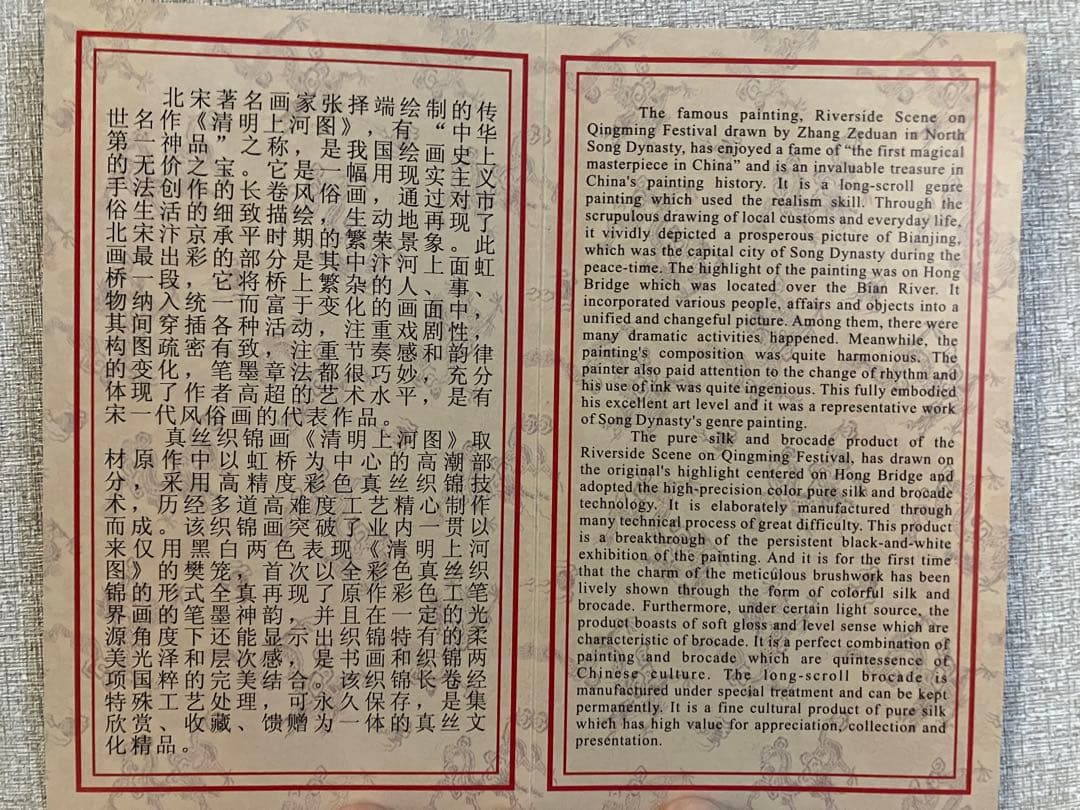 北宋著名画家张择端绘制的传
世名作《清明上河图》，有“中华
第一神品”之称，是我国绘画史上
的无价之宝。它是一幅用现实主义
手法创作的长卷风俗画，通过对市
俗生活的细致描绘，生动地再现了
北宋汴京承平时期的繁荣景象。此
画最出彩的部分是其中汴河上面虹
桥一段，它将桥上繁杂的人、事、
物纳入统一而富于变化的画面中，
其间穿插各种活动，注重戏剧性，
构图疏密有致，注重节奏感和韵律
的变化，笔墨章法都很巧妙，充分
体现了作者高超的艺术水平，是有
宋一代风俗画的代表作品。
真丝织锦画《清明上河图》取
材原作中以虹桥为中心的高潮部
分，采用高精度彩色真丝织锦技
术，历经多道高难度工艺精心制作
而成。该织锦画突破了业内一贯以
来仅用黑白两色表现《清明上河
图》的樊笼，首次以全彩色真丝织
锦的形式全真再现了原作彩色工笔
界画的笔墨神韵，并且在一定的光
源角度下还能显示出织锦特有的柔
美光泽和层次感，是书画和织锦两
项国粹的完美结合。该织锦长卷经
特殊工艺处理，可永久保存，是集
欣赏、收藏、馈赠为一体的真丝文
化精品。
The famous painting, Riverside Scene on
Qingming Festival drawn by Zhang Zeduan in North
Song Dynasty, has enjoyed a fame of “the first magical
masterpiece in China” and is an invaluable treasure in
China's painting history. It is a long-scroll genre
painting which used the realism skill. Through the
scrupulous drawing of local customs and everyday life,
it vividly depicted a prosperous picture of Bianjing,
which was the capital city of Song Dynasty during the
peace-time. The highlight of the painting was on Hong
Bridge which was located over the Bian River. It
incorporated various people, affairs and objects into a
unified and changeful picture. Among them, there were
many dramatic activities happened. Meanwhile, the
painting's composition was quite harmonious. The
painter also paid attention to the change of rhythm and
his use of ink was quite ingenious. This fully embodied
his excellent art level and it was a representative work
of Song Dynasty's genre painting.
The pure silk and brocade product of the
Riverside Scene on Qingming Festival, has drawn on
the original's highlight centered on Hong Bridge and
adopted the high-precision color pure silk and brocade
technology. It is elaborately manufactured through
many technical process of great difficulty. This product
is a breakthrough of the persistent black-and-white
exhibition of the painting. And it is for the first time
that the charm of the meticulous brushwork has been
lively shown through the form of colorful silk and
brocade. Furthermore, under certain light source, the
product boasts of soft gloss and level sense which are
characteristic of brocade. It is a perfect combination of
painting and brocade which are quintessence of
Chinese culture. The long-scroll brocade is
manufactured under special treatment and can be kept
permanently. It is a fine cultural product of pure silk
which has high value for appreciation, collection and
presentation.